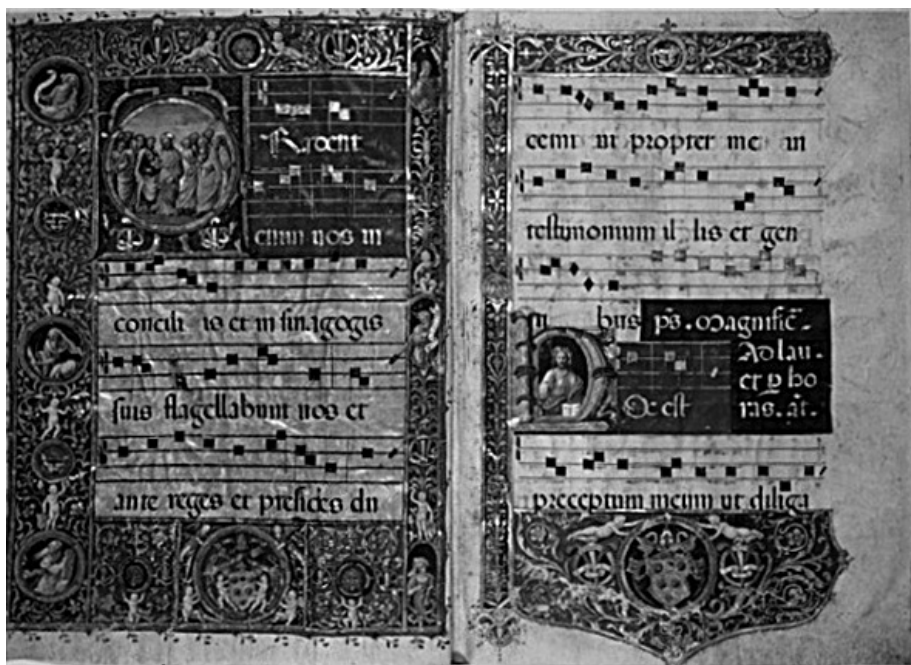 TRadent
enim vos in
concili is et in sinagogis
suis flagellabunt vos et
ante reges et presides du
cemi ni propter me in
testimonium il lis et gen
ti bus p̄s. Magnific̄.
Ad lau.
et ꝑ ho
HOc est ras. añ.
preceptum meum ut diliga